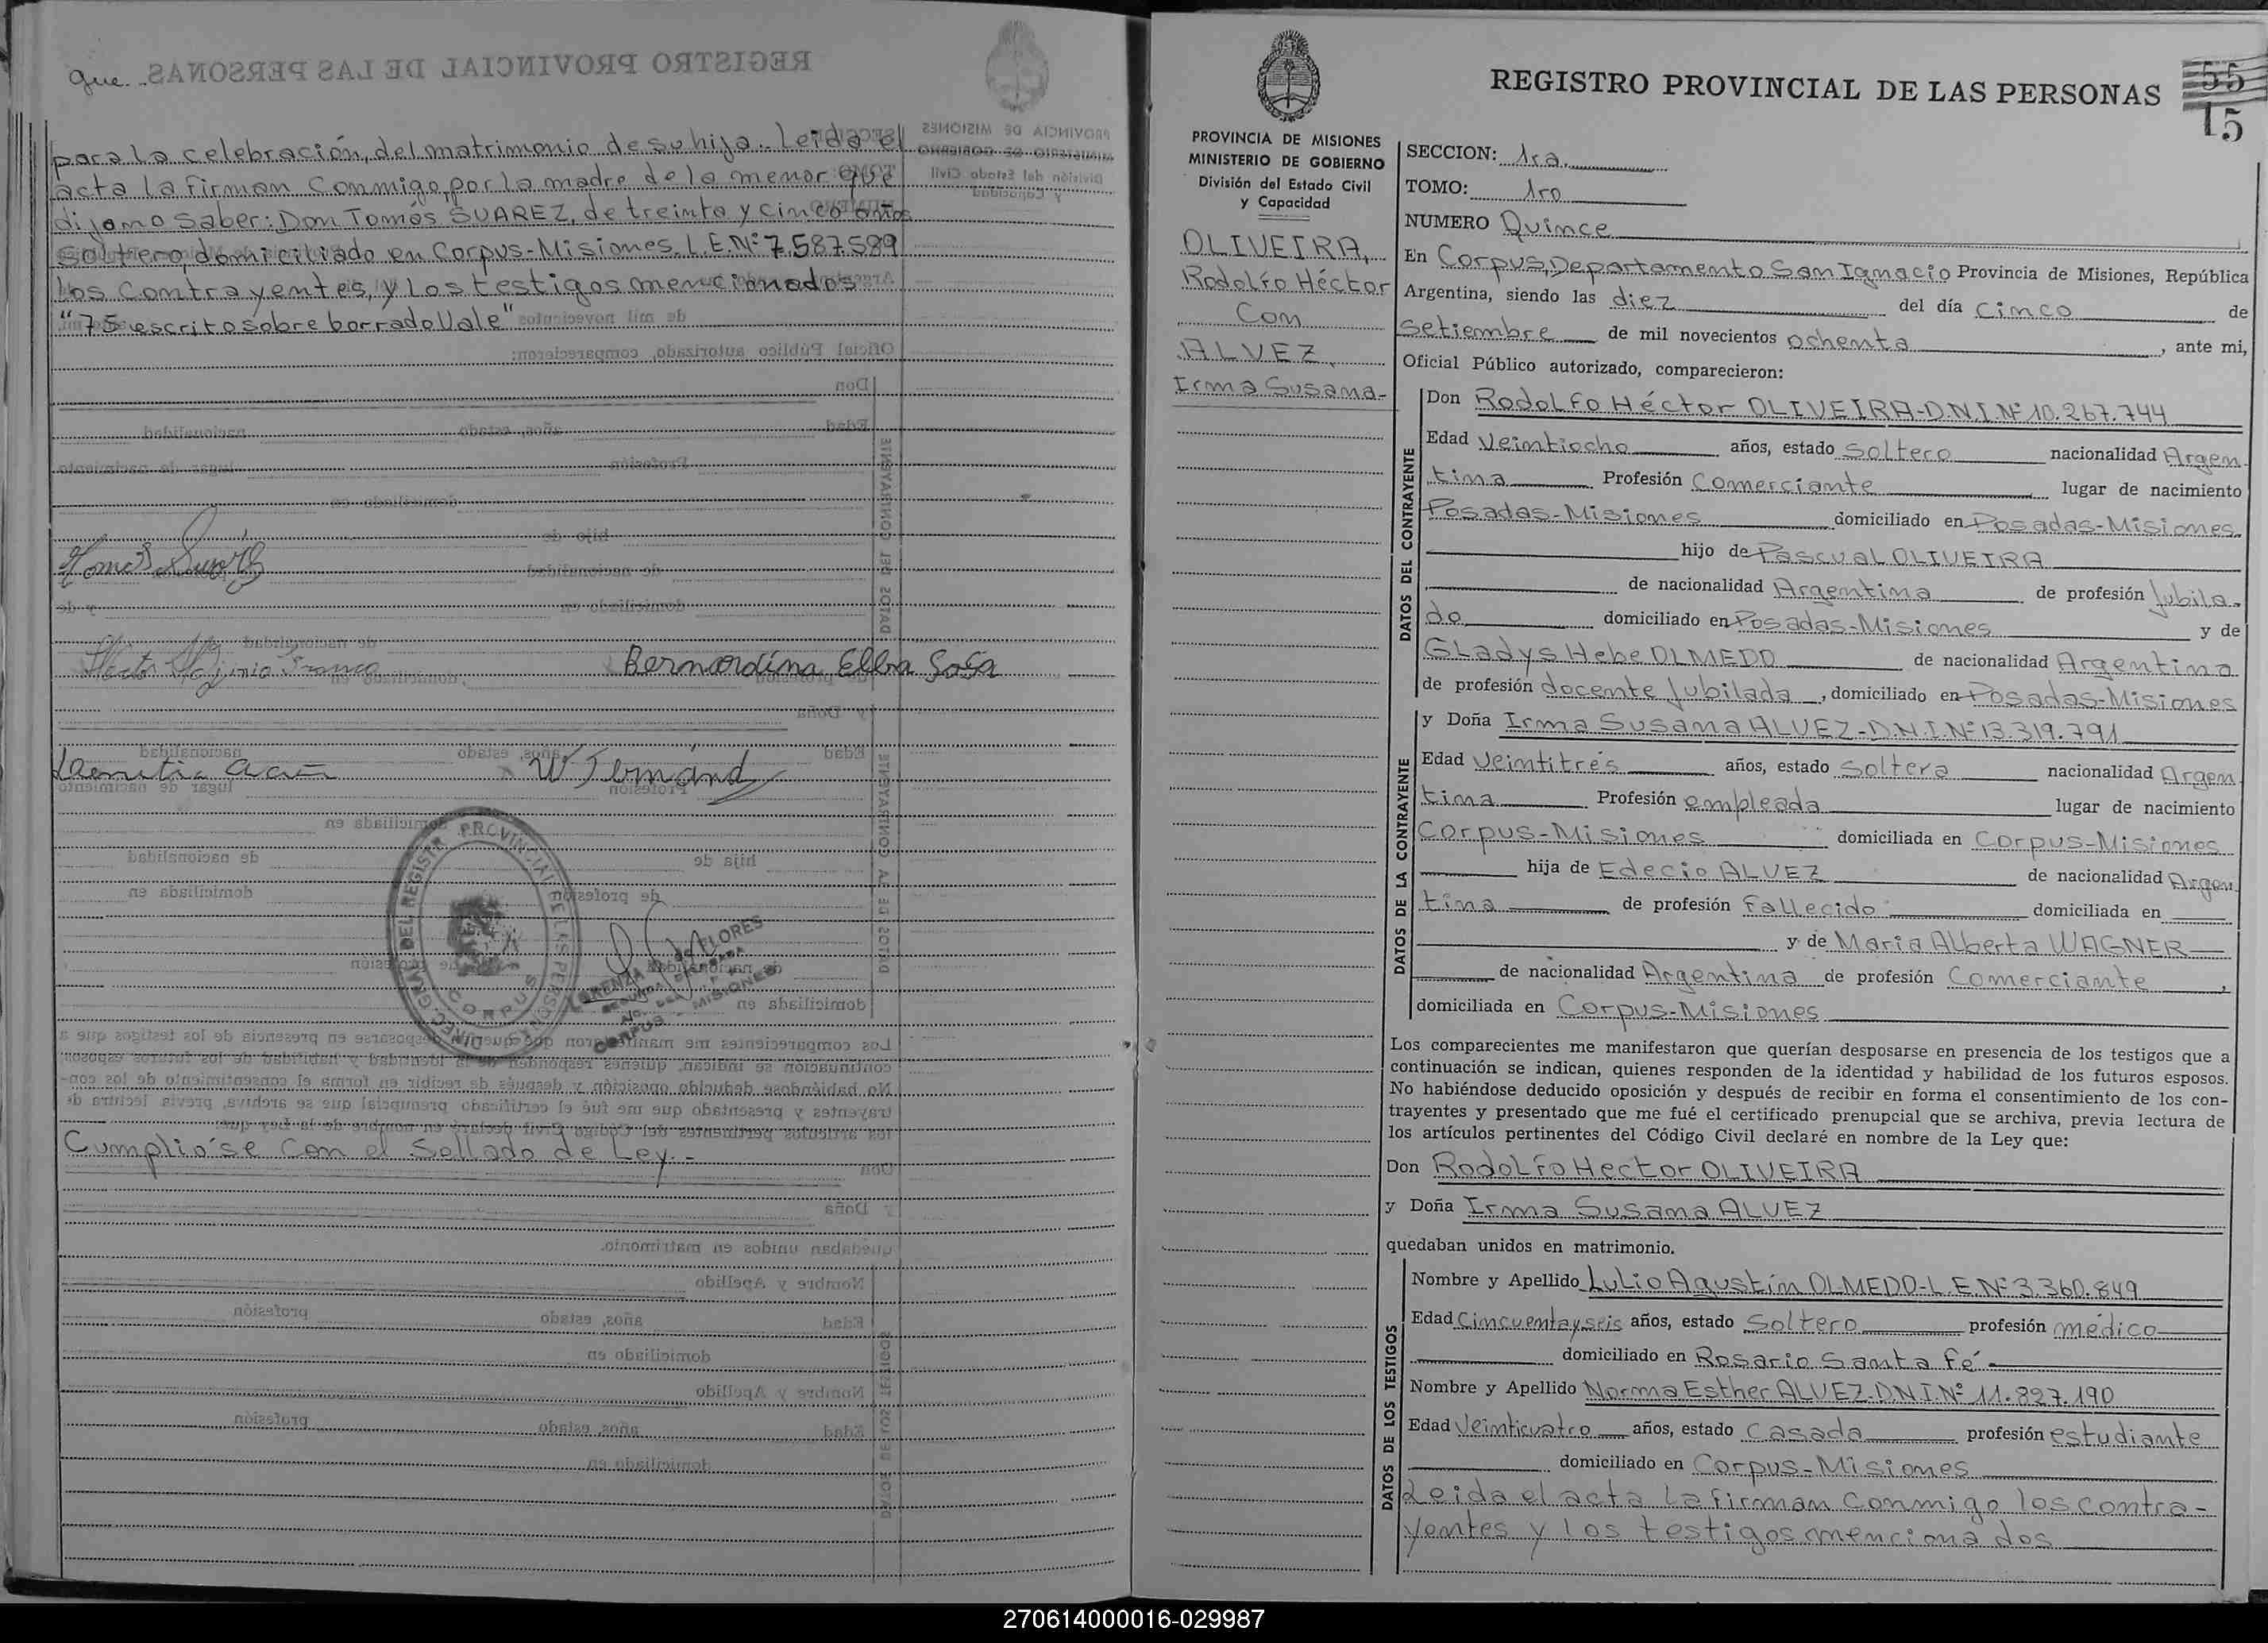 que
para la celebración, del matrimonio de su hija.. Leida el
acta la firman Conmigo, por la madre de la menor que
dijo no saber: Don Tomás SUAREZ, de treinta y cinco años
soltero, domiciliado en Corpus-Misiones. L.E.Nº 7.587.589
los Contrayentes, y los testigos mencionados
"75 escrito sobre borrado Vale"
Bernardina Elba Sosa
DIREC. GRAL. DEL REGISTRO PROVINCIAL DE LAS PERSONAS
CORPUS
LORENZA FLORES
CORPUS - MISIONES
Cumplió'se con el Sellado de Ley.-
REGISTRO PROVINCIAL DE LAS PERSONAS
55
15
PROVINCIA DE MISIONES
MINISTERIO DE GOBIERNO
División del Estado Civil
y Capacidad
OLIVEIRA,
Rodolfo Héctor
Con
ALVEZ,
Irma Susana-
SECCION: 1ra.
TOMO: 1ro
NUMERO Quince
En Corpus, Departamento San Ignacio Provincia de Misiones, República
Argentina, siendo las diez del día Cinco de
setiembre de mil novecientos ochenta, ante mi,
Oficial Público autorizado, comparecieron:
DATOS DEL CONTRAYENTE
Don Rodolfo Héctor OLIVEIRA-D.N.I.Nº 10.267.744
Edad Veintiocho años, estado Soltero nacionalidad Argen
tina Profesión Comerciante lugar de nacimiento
Posadas-Misiones domiciliado en Posadas-Misiones.
hijo de Pascual OLIVEIRA
de nacionalidad Argentina de profesión Jubila-
do domiciliado en Posadas-Misiones y de
Gladys Hebe OLMEDO de nacionalidad Argentina
de profesión docente Jubilada, domiciliado en Posadas-Misiones
DATOS DE LA CONTRAYENTE
y Doña Irma Susana ALVEZ-D.N.I.Nº 13.319.791
Edad Veintitrés años, estado Soltera nacionalidad Argen
tina Profesión empleada lugar de nacimiento
Corpus-Misiones domiciliada en Corpus-Misiones
hija de Edecio ALVEZ de nacionalidad Argen
tina de profesión Fallecido domiciliada en
y de Maria Alberta WAGNER
de nacionalidad Argentina de profesión Comerciante,
domiciliada en Corpus-Misiones
Los comparecientes me manifestaron que querían desposarse en presencia de los testigos que a
continuación se indican, quienes responden de la identidad y habilidad de los futuros esposos.
No habiéndose deducido oposición y después de recibir en forma el consentimiento de los con-
trayentes y presentado que me fué el certificado prenupcial que se archiva, previa lectura de
los artículos pertinentes del Código Civil declaré en nombre de la Ley que:
Don Rodolfo Hector OLIVEIRA
y Doña Irma Susana ALVEZ
quedaban unidos en matrimonio.
DATOS DE LOS TESTIGOS
Nombre y Apellido Lulio Agustín OLMEDO-L.E.Nº 3.360.849
Edad Cincuenta y seis años, estado Soltero profesión médico
domiciliado en Rosario Santa Fé
Nombre y Apellido Norma Esther ALVEZ.D.N.I.Nº 11.827.190
Edad Veinticuatro años, estado Casada profesión estudiante
domiciliado en Corpus-Misiones
Leida el acta la firman conmigo los contra-
yentes y los testigos mencionados
270614000016-029987